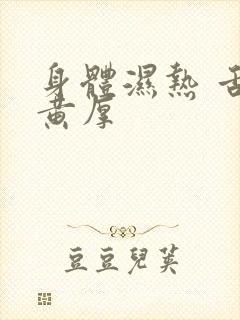 身體濕熱 舌
黃厚
豆豆兒英